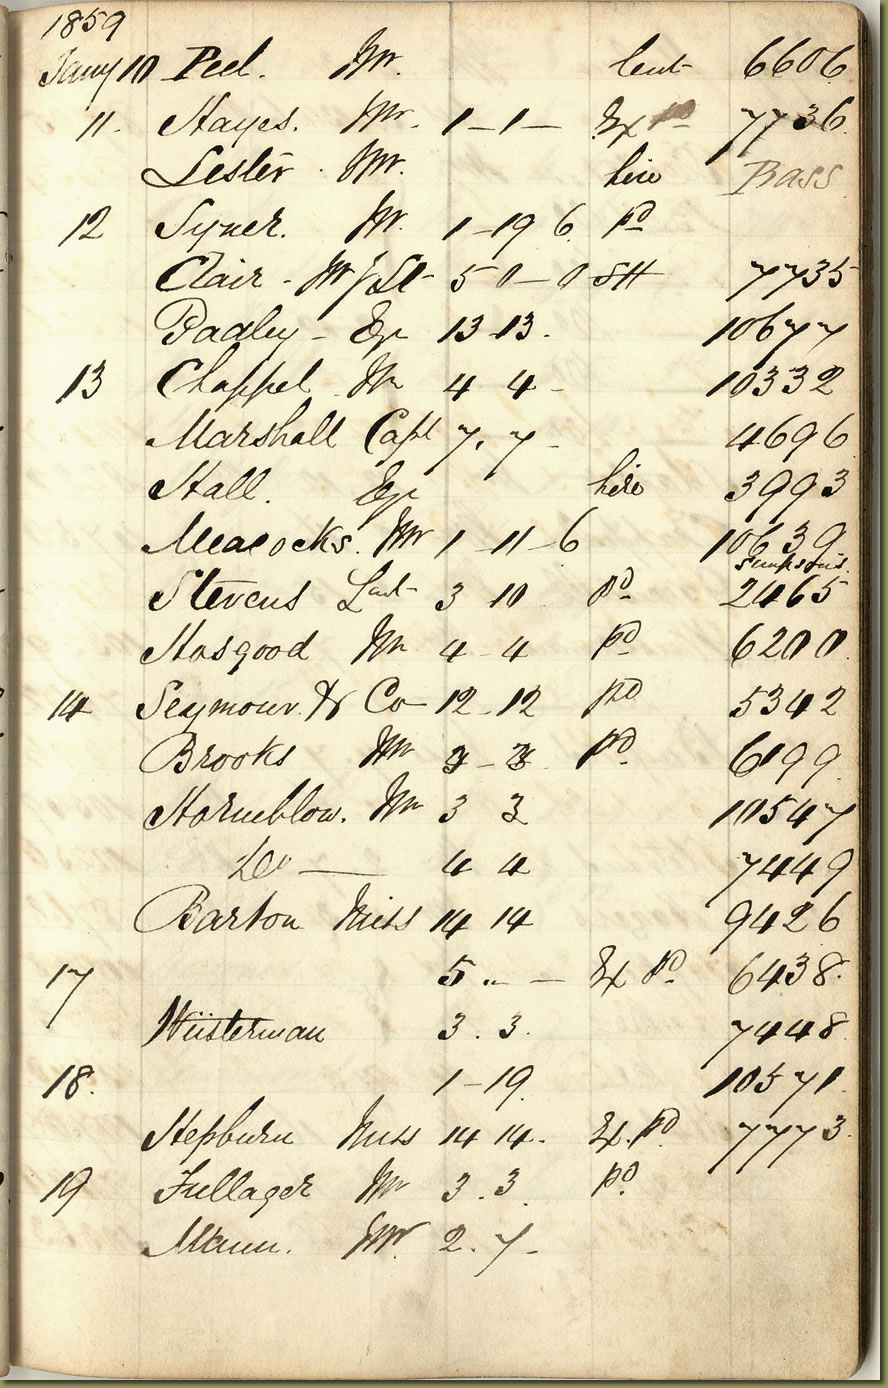 1859
Jany 10 Peel. Mr. lent 6606
11. Hayes. Mr. 1-1- Ex pd 7736
Lester. Mr. hire Bass
12 Syner. Mr. 1-19 6 pd
Clair - Mr J St 5 0-0 SH 7735
Padley - Eqr 13-13. 10677
13 Chappel Mr 4 4 - 10332
Marshall Capt 7. 7 - 4696
Hall. Eqr hire 3993
Meacocks. Mr 1-11-6 10639
Simpson's
Stevens Lieut- 3 10 pd 2465
Hosgood Mr 4-4 pd 6200
14 Seymour. & Co- 12-12 pd 5342
Brooks Mr 3-3 pd 6199
Horneblow. Mr 3 3 10547
Do — 4 4 7449
Barton Miss 14 14 9426
17 5 " - Ex pd 6438.
Wüsterman 3. 3. 7448
18. 1-19. 10571
Hepburn Miss 14 14. Ex. pd 7773.
19 Fullager Mr 3. 3. pd
Mann. Mr. 2. 7-